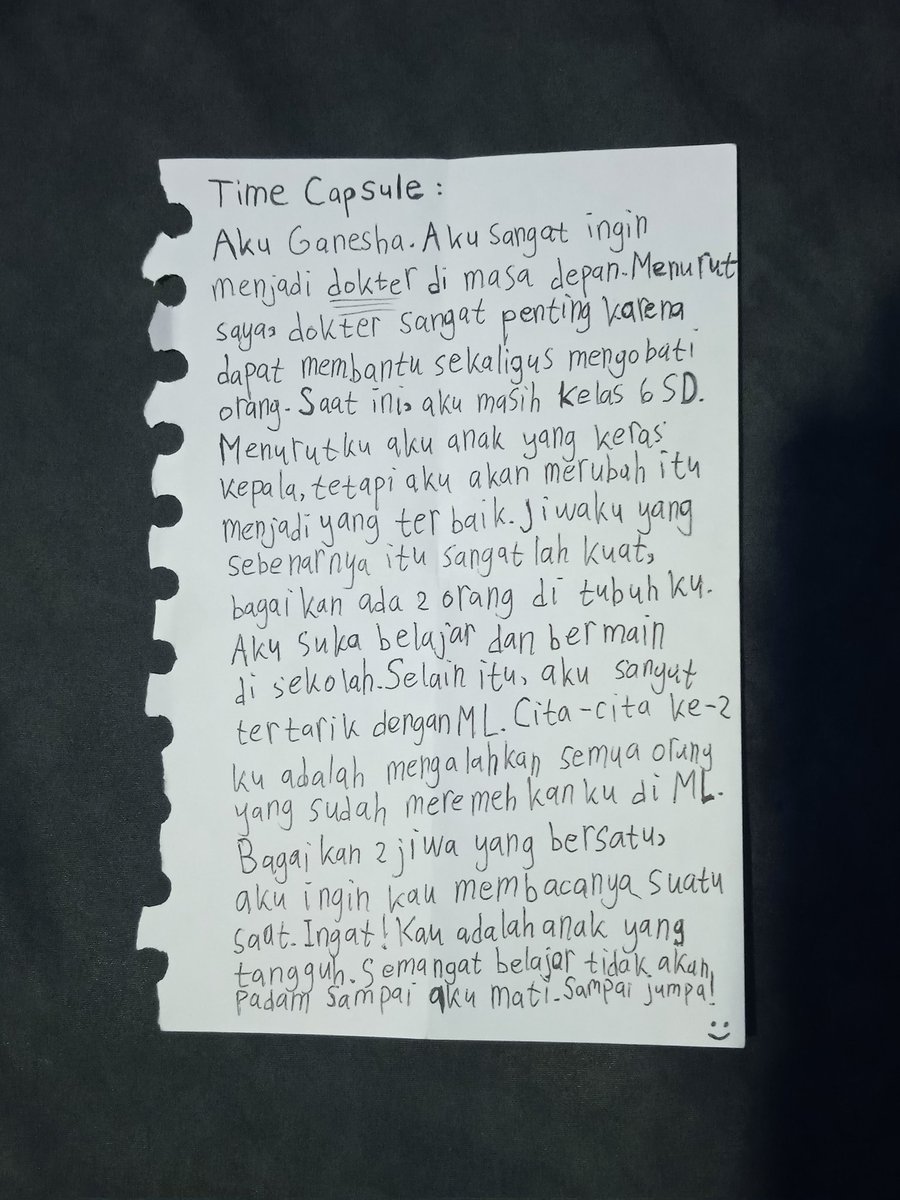 Time Capsule :
Aku Ganesha. Aku sangat ingin
menjadi dokter di masa depan. Menurut
saya, dokter sangat penting karena
dapat membantu sekaligus mengobati
orang. Saat ini, aku masih kelas 6 SD.
Menurutku aku anak yang keras
kepala, tetapi aku akan merubah itu
menjadi yang ter baik. Jiwaku yang
sebenarnya itu sangat lah kuat,
bagai kan ada 2 orang di tubuh ku.
Aku suka belajar dan bermain
di sekolah. Selain itu, aku sangat
tertarik dengan ML. Cita-cita ke-2
ku adalah mengalahkan semua orang
yang sudah meremeh kan ku di ML.
Bagai kan 2 jiwa yang bersatu,
aku ingin kau membacanya suatu
saat. Ingat! Kau adalah anak yang
tangguh. Semangat belajar tidak akan
padam sampai aku mati. Sampai jumpa!